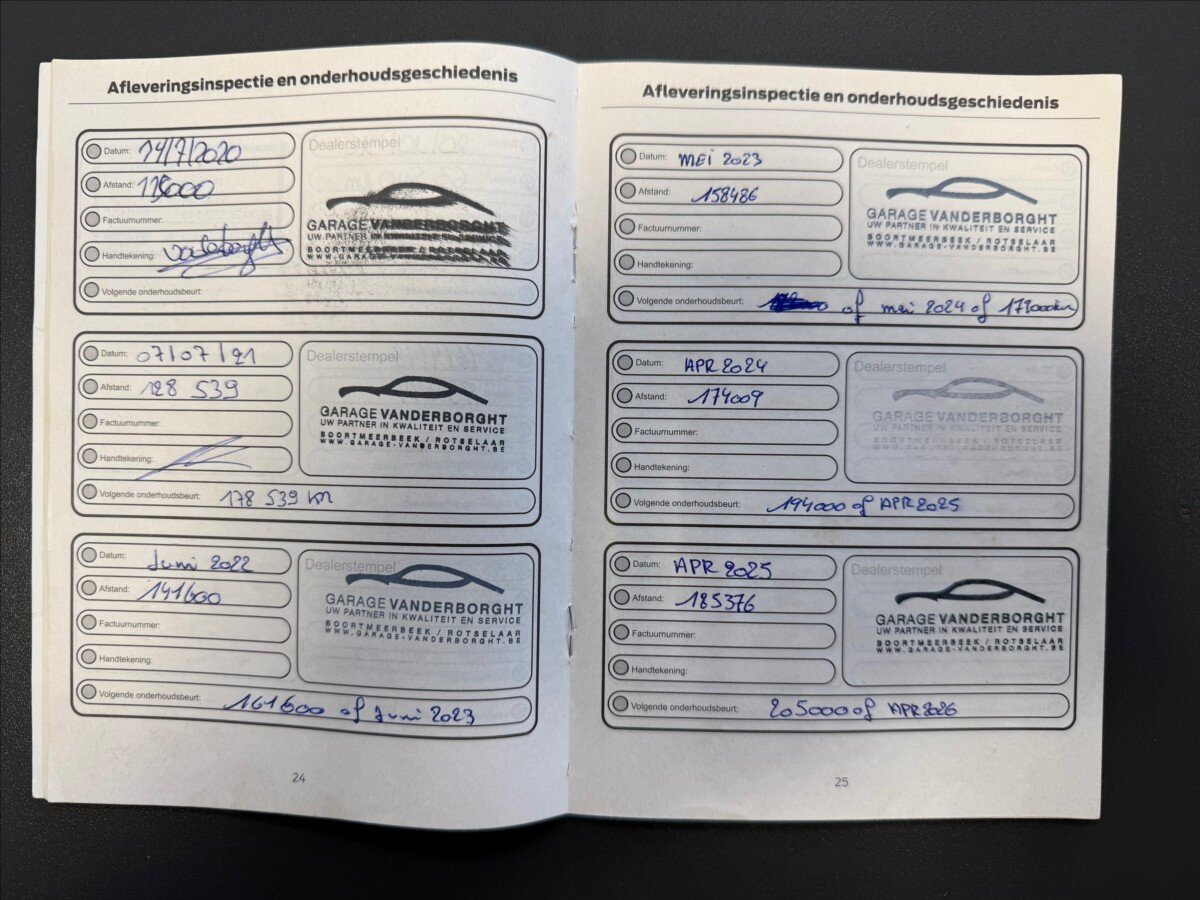 Afleveringsinspectie en onderhoudsgeschiedenis
Datum: 14/7/2020
Dealerstempel
Afstand:
Factuurnummer:
Handtekening:
Volgende onderhoudsbeurt:
GARAGE VANDERBORGHT
UW PARTNER IN KWALITEIT EN SERVICE
BOORTMEERBEEK / ROTSELAAR
WWW.GARAGE-VANDERBORGHT.BE
Datum: 07/07/21
Dealerstempel
Afstand: 128 539
Factuurnummer:
Handtekening:
Volgende onderhoudsbeurt: 178 539 km
GARAGE VANDERBORGHT
UW PARTNER IN KWALITEIT EN SERVICE
BOORTMEERBEEK / ROTSELAAR
WWW.GARAGE-VANDERBORGHT.BE
Datum: Juni 2022
Dealerstempel
Afstand: 141600
Factuurnummer:
Handtekening:
Volgende onderhoudsbeurt: 161600 of Juni 2023
GARAGE VANDERBORGHT
UW PARTNER IN KWALITEIT EN SERVICE
BOORTMEERBEEK / ROTSELAAR
WWW.GARAGE-VANDERBORGHT.BE
24
Afleveringsinspectie en onderhoudsgeschiedenis
Datum: MEI 2023
Dealerstempel
Afstand: 158486
Factuurnummer:
Handtekening:
Volgende onderhoudsbeurt: of mei 2024 of 173000km
GARAGE VANDERBORGHT
UW PARTNER IN KWALITEIT EN SERVICE
BOORTMEERBEEK / ROTSELAAR
WWW.GARAGE-VANDERBORGHT.BE
Datum: APR 2024
Dealerstempel
Afstand: 174009
Factuurnummer:
Handtekening:
Volgende onderhoudsbeurt: 194000 of APR 2025
GARAGE VANDERBORGHT
UW PARTNER IN KWALITEIT EN SERVICE
BOORTMEERBEEK / ROTSELAAR
WWW.GARAGE-VANDERBORGHT.BE
Datum: APR 2025
Dealerstempel
Afstand: 185376
Factuurnummer:
Handtekening:
Volgende onderhoudsbeurt: 205000 of APR 2026
GARAGE VANDERBORGHT
UW PARTNER IN KWALITEIT EN SERVICE
BOORTMEERBEEK / ROTSELAAR
WWW.GARAGE-VANDERBORGHT.BE
25